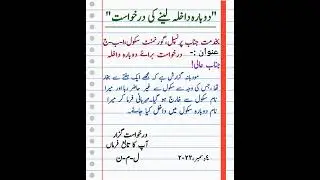 "دوبارہ داخلہ لینے کی درخواست"
بخدمت جناب پرنسپل، گورنمنٹ سکول، ا-ب-ج
عنوان :- درخواست برائے دوبارہ داخلہ
جناب عالی!
مودبانہ گزارش ہے کہ مجھے ایک ہفتے سے بخار
تھا، جس کی وجہ سے سکول سے غیر حاضر رہا اور میرا
نام سکول سے خارج ہو گیا۔ مہربانی فرما کر میرا
نام دوبارہ سکول میں داخل کیا جائے۔
درخواست گزار
آپ کا تابع فرماں
ل-م-ن
۴؍دسمبر، ۲۰۲۲ء